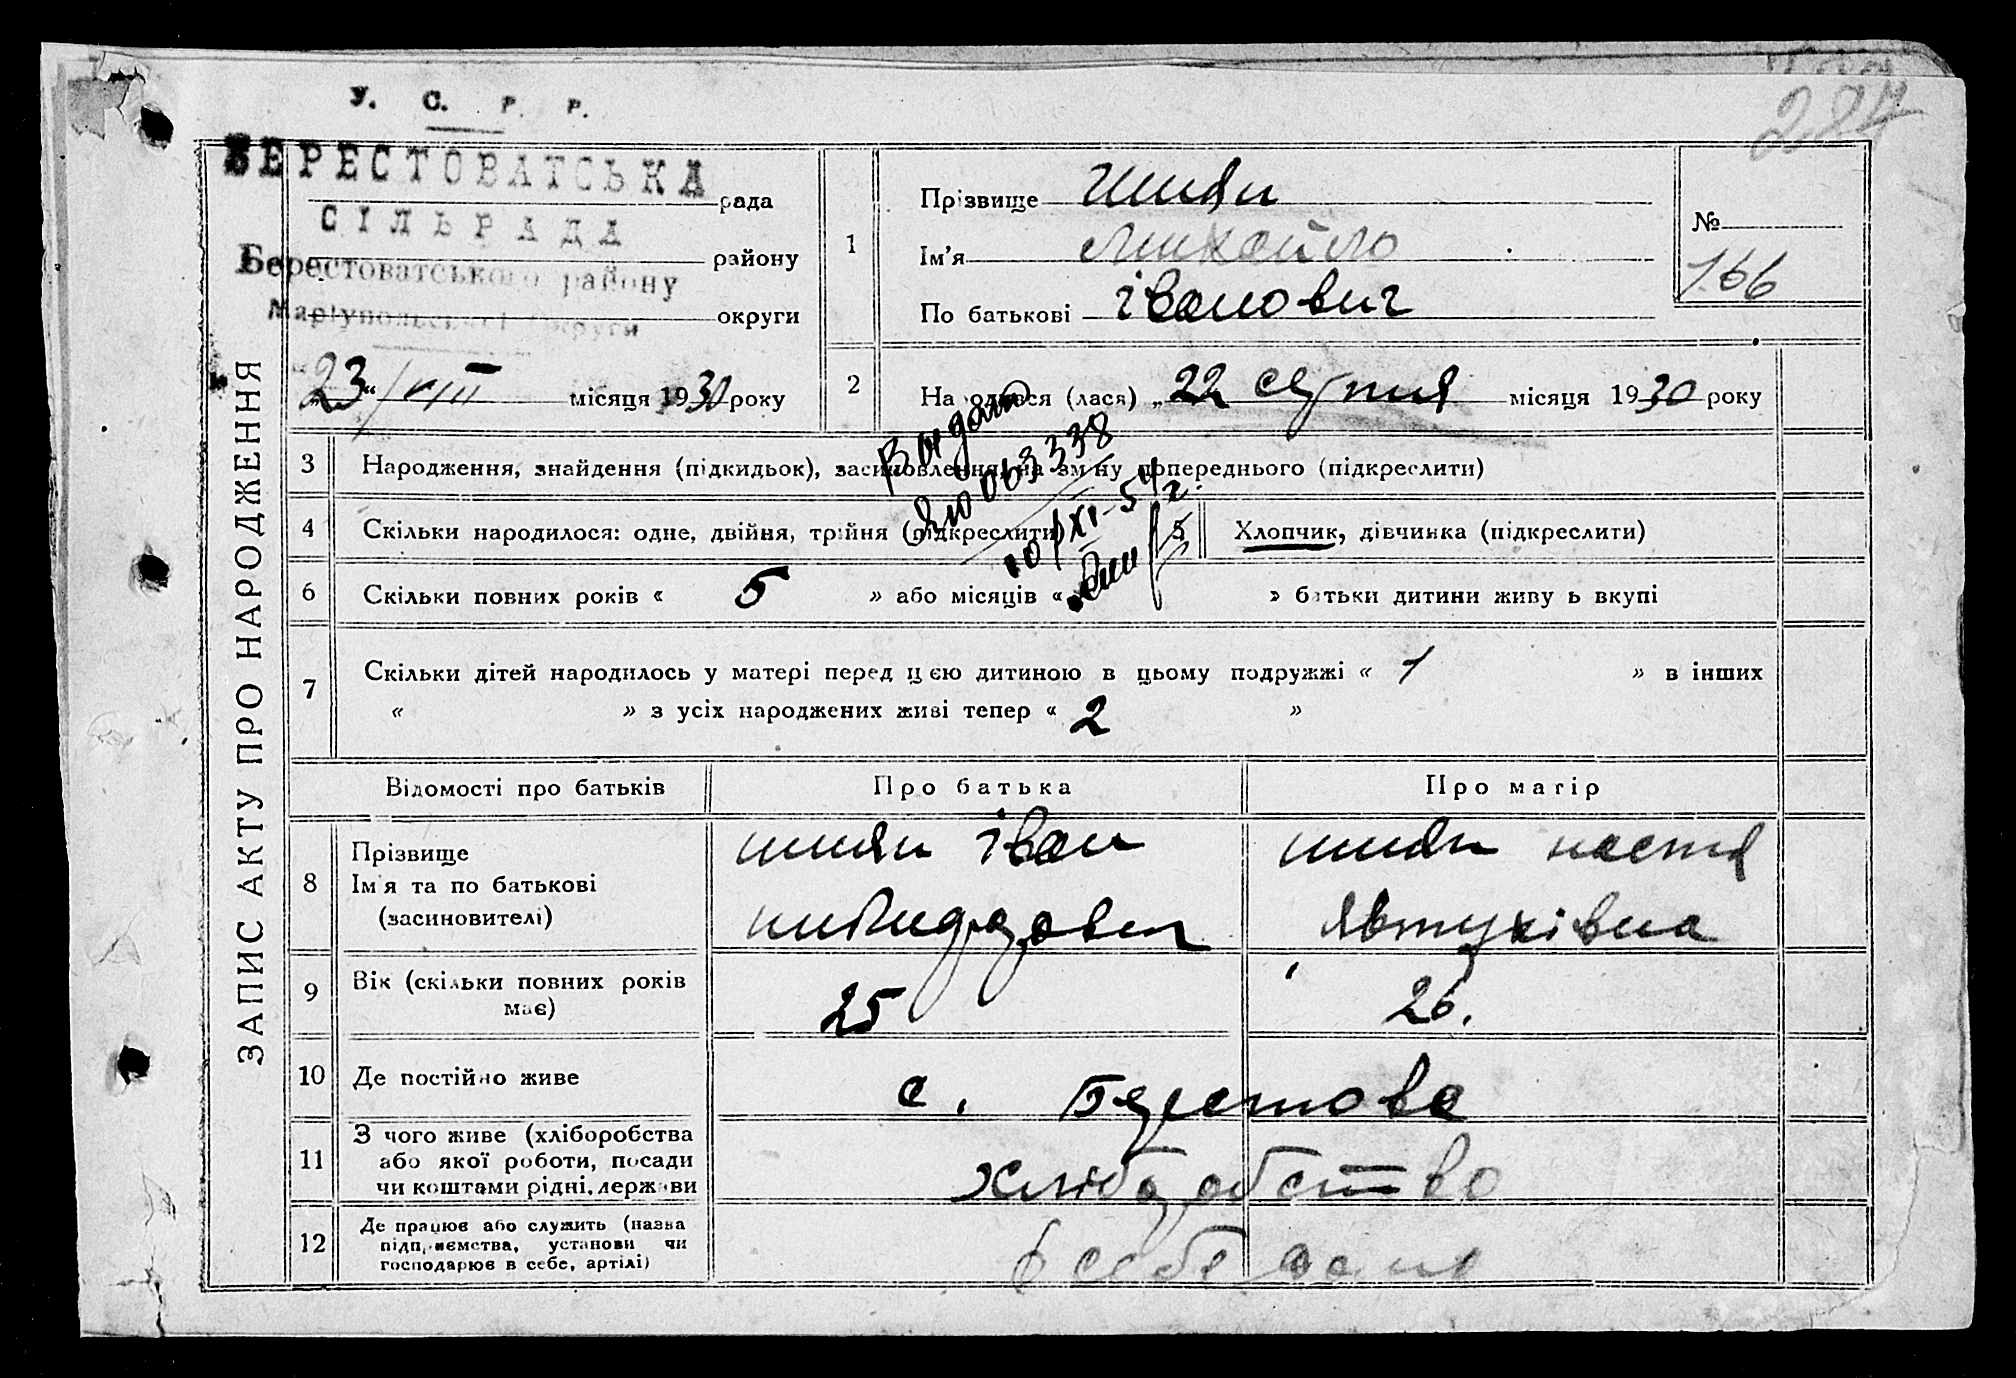 У. С. Р. Р.
БЕРЕСТОВАТСЬКА рада
СІЛЬРАДА
Берестоватського району району
Маріупольської округи округи
„23“ VIII місяця 1930 року
284
1 Прізвище Шиян
Ім'я Михайло
По батькові Іванович
№ 166
2 Народився (лася) „22 серпня місяця 1930 року
ЗАПИС АКТУ ПРО НАРОДЖЕННЯ
3 Народження, знайдення (підкидьок), засиновлення, на зміну попереднього (підкреслити)
4 Скільки народилося: одне, двійня, трійня (підкреслити)
5 Хлопчик, дівчинка (підкреслити)
063338
10/XI-54 г.
6 Скільки повних років « 5 » або місяців « » батьки дитини живуть вкупі
7 Скільки дітей народилось у матері перед цією дитиною в цьому подружжі « 1 » в інших
« » з усіх народжених живі тепер « 2 »
Відомості про батьків Про батька Про матір
8 Прізвище
Ім'я та по батькові
(засиновителі)
шиян іван
шиян настя
Явтухівна
9 Вік (скільки повних років
має)
25 26.
10 Де постійно живе с. Берестове
11 З чого живе (хліборобства
або якої роботи, посади
чи коштами рідні, держави
хліборобство
12 Де працює або служить (назва
підприємства, установи чи
господарює в себе, артілі)
в себе